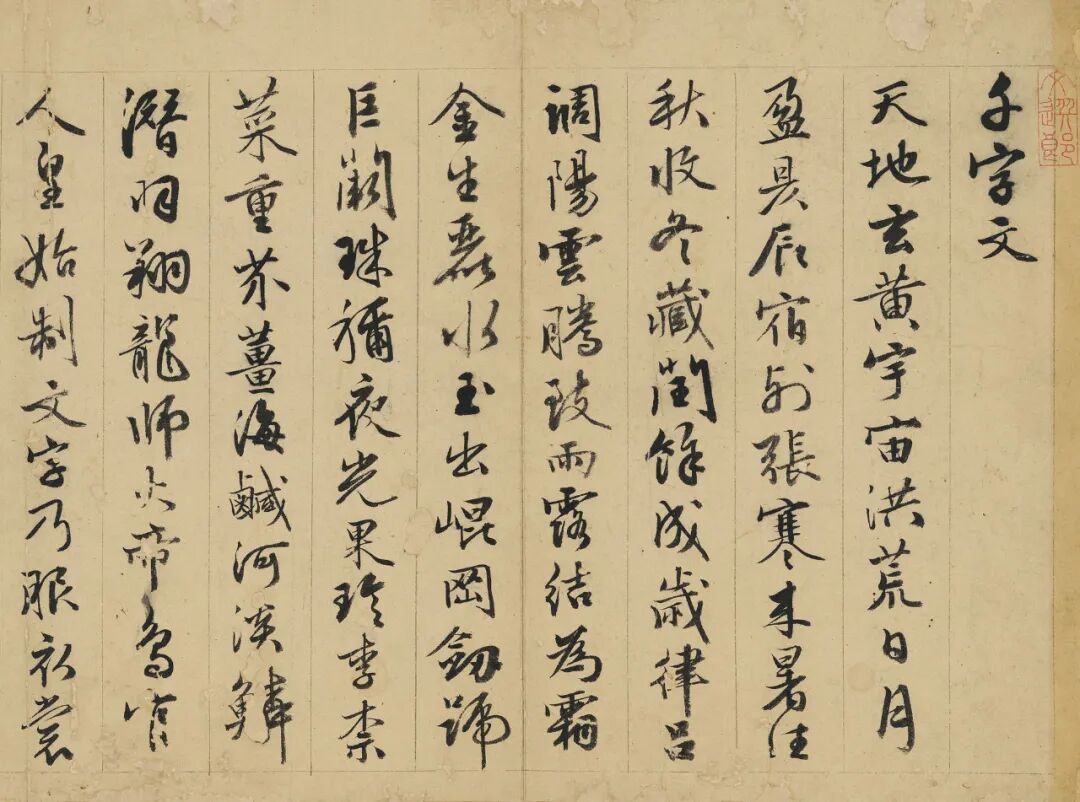 千字文
天地玄黄宇宙洪荒日月
盈昃辰宿列張寒来暑往
秋收冬藏閏餘成歲律吕
調陽雲騰致雨露結為霜
金生麗水玉出崐岡劒號
巨闕珠稱夜光果珍李柰
菜重芥薑海鹹河淡鱗
潛羽翔龍師火帝鳥官
人皇始制文字乃服衣裳